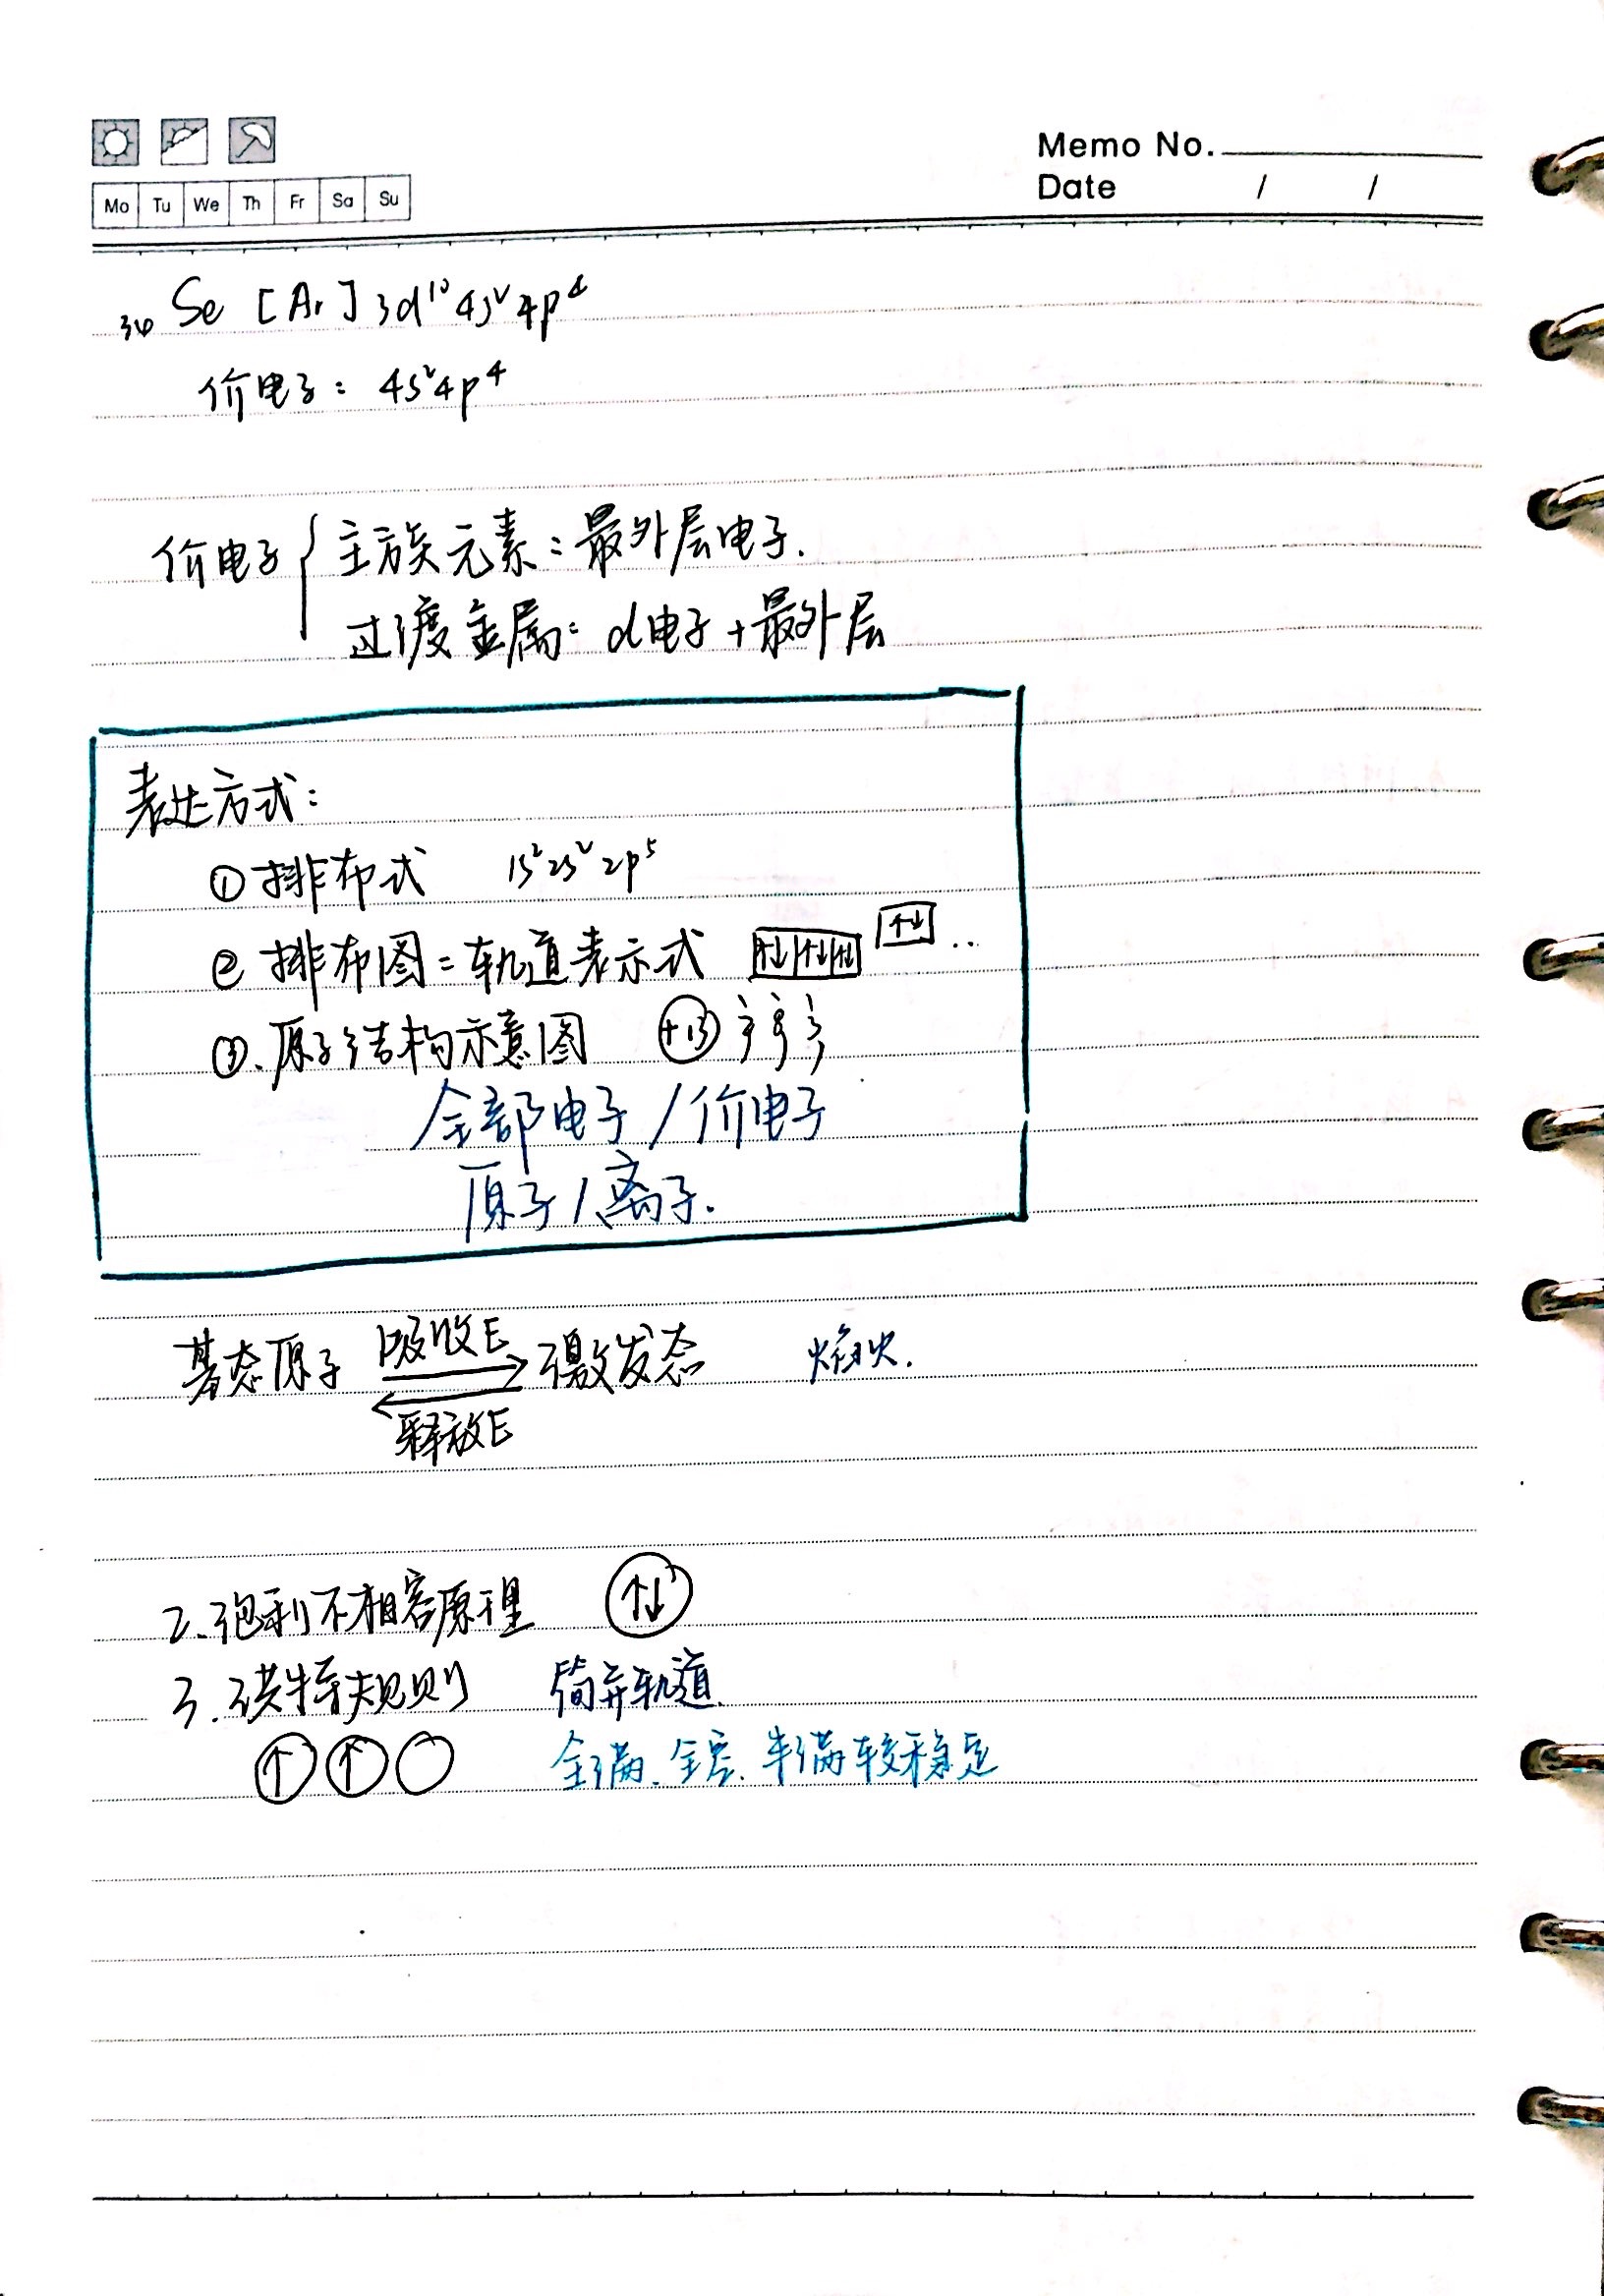 Memo No.
Date / /
Mo Tu We Th Fr Sa Su
₃₄Se [Ar] 3d¹⁰ 4s² 4p⁴
价电子: 4s² 4p⁴
价电子 { 主族元素: 最外层电子.
过渡金属: d电子+最外层
表达方式:
① 排布式 1s² 2s² 2p⁵
② 排布图=轨道表示式 ↑↓ ↑↓ ↑↓ ↑↓ ..
③. 原子结构示意图 +13
全部电子 / 价电子
原子 / 离子.
吸收E
基态原子 ⇌ 激发态 焰火.
释放E
2. 泡利不相容原理 ↑↓
3. 洪特规则 简并轨道
↑ ↑ 全满. 全空. 半满较稳定